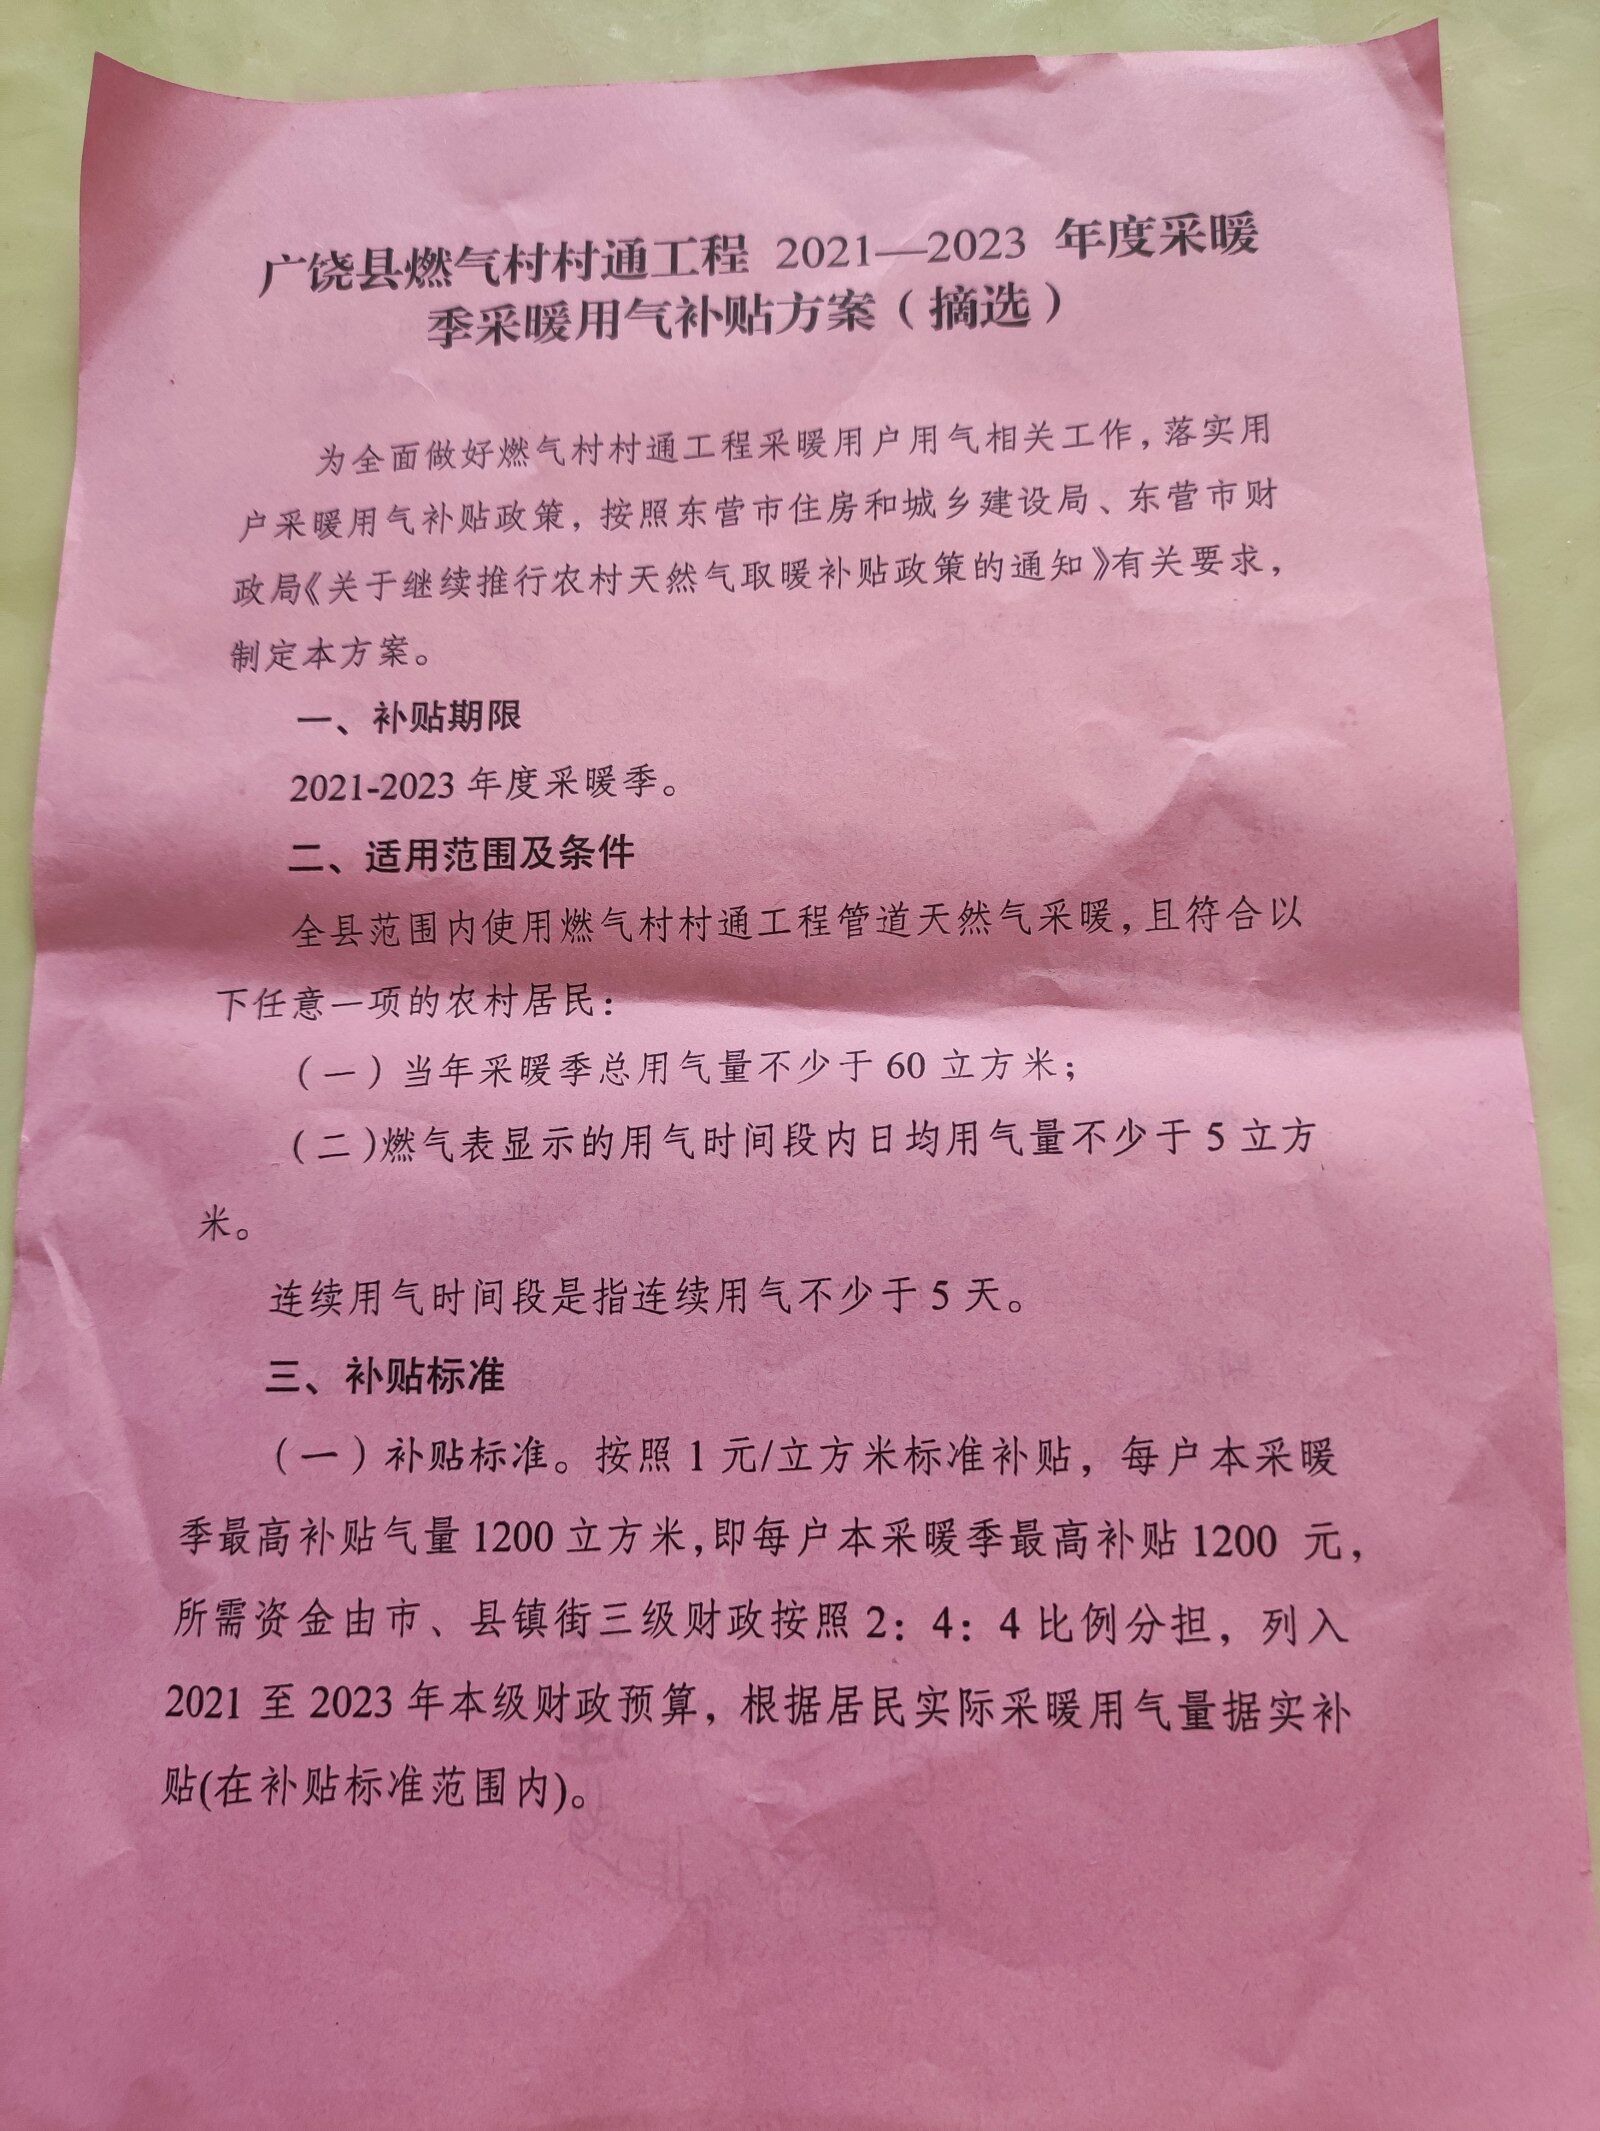 广饶县燃气村村通工程 2021—2023 年度采暖
季采暖用气补贴方案（摘选）
为全面做好燃气村村通工程采暖用户用气相关工作，落实用
户采暖用气补贴政策，按照东营市住房和城乡建设局、东营市财
政局《关于继续推行农村天然气取暖补贴政策的通知》有关要求，
制定本方案。
一、补贴期限
2021-2023 年度采暖季。
二、适用范围及条件
全县范围内使用燃气村村通工程管道天然气采暖，且符合以
下任意一项的农村居民：
（一）当年采暖季总用气量不少于 60 立方米；
（二）燃气表显示的用气时间段内日均用气量不少于 5 立方
米。
连续用气时间段是指连续用气不少于 5 天。
三、补贴标准
（一）补贴标准。按照 1 元/立方米标准补贴，每户本采暖
季最高补贴气量 1200 立方米，即每户本采暖季最高补贴 1200 元，
所需资金由市、县镇街三级财政按照 2：4：4 比例分担，列入
2021 至 2023 年本级财政预算，根据居民实际采暖用气量据实补
贴(在补贴标准范围内)。